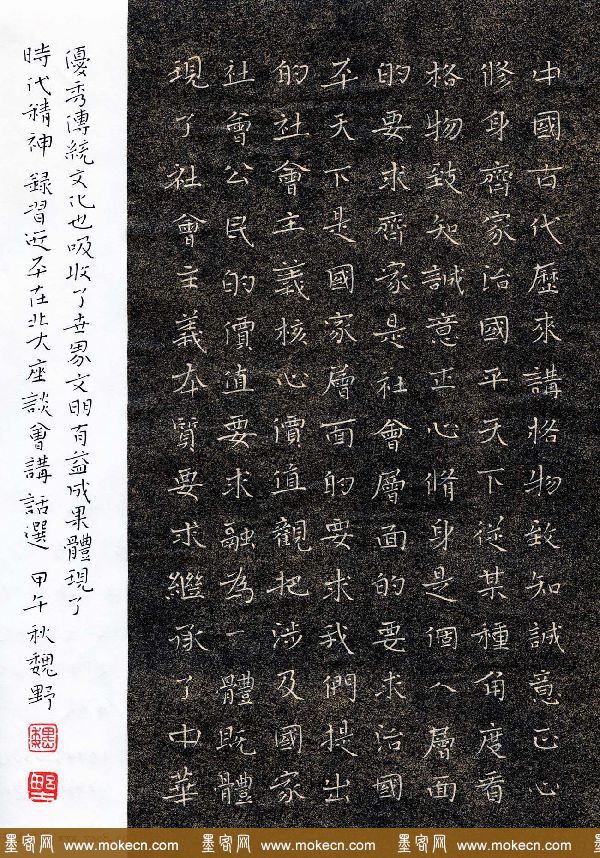 中國古代歷來講格物致知誠意正心
修身齊家治國平天下從某種角度看
格物致知誠意正心脩身是個人層面
的要求齊家是社會層面的要求治國
平天下是國家層面的要求我們提出
的社會主義核心價值觀把涉及國家
社會公民的價值要求融為一體既體
現了社會主義本質要求繼承了中華
優秀傳統文化也吸收了世界文明有益成果體現了
時代精神 錄習近平在北大座談會講話選 甲午秋魏野
魏
野
墨客网 www.mokecn.com 墨客网 www.mokecn.com 墨客网 www.mokecn.com